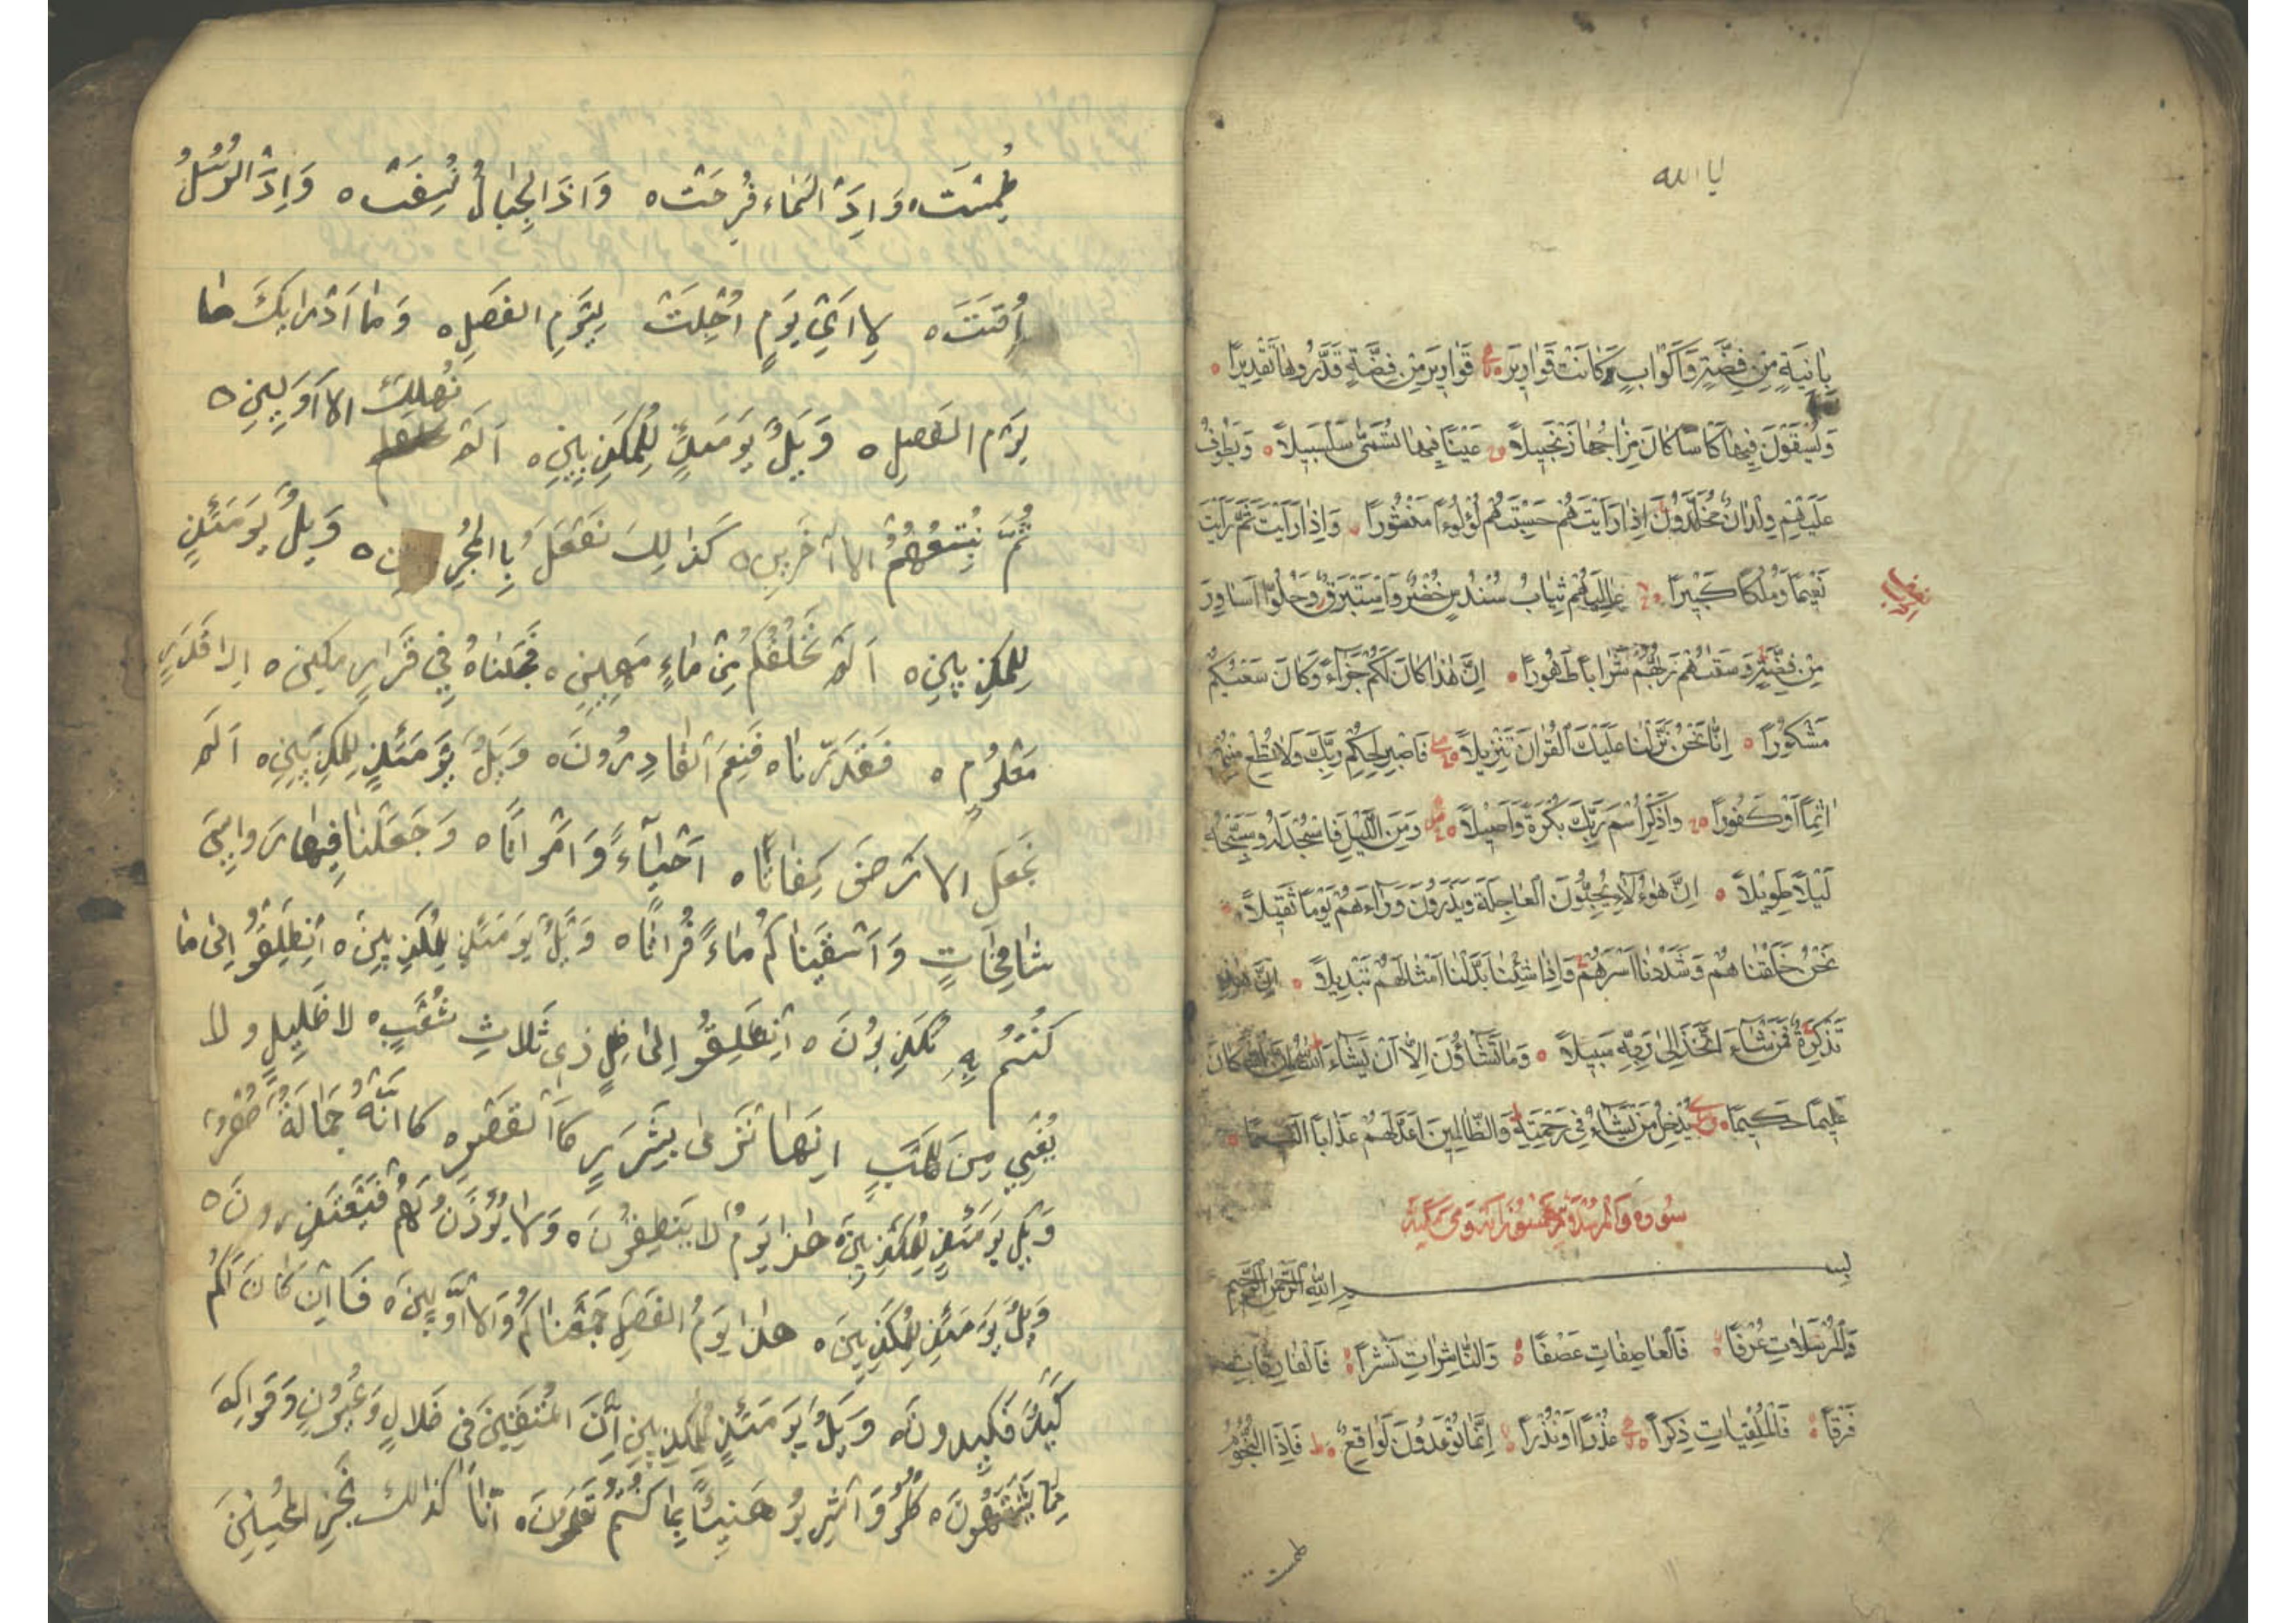 يا الله
بِاٰنِيَةٍ مِنْ فِضَّةٍ وَاَكْوَابٍ كَانَتْ قَوَارِيرَ قَوَارِيرَ مِنْ فِضَّةٍ قَدَّرُوهَا تَقْدِيرًا
وَيُسْقَوْنَ فِيهَا كَاْسًا كَانَ مِزَاجُهَا زَنْجَبِيلاً عَيْنًا فِيهَا تُسَمّٰى سَلْسَبِيلاً وَيَطُوفُ
عَلَيْهِمْ وِلْدَانٌ مُخَلَّدُونَ اِذَا رَاَيْتَهُمْ حَسِبْتَهُمْ لُؤْلُؤًا مَنْثُورًا وَاِذَا رَاَيْتَ ثَمَّ رَاَيْتَ
نَعِيمًا وَمُلْكًا كَبِيرًا عَالِيَهُمْ ثِيَابُ سُنْدُسٍ خُضْرٌ وَاِسْتَبْرَقٌ وَحُلُّوا اَسَاوِرَ
مِنْ فِضَّةٍ وَسَقٰيهُمْ رَبُّهُمْ شَرَابًا طَهُورًا اِنَّ هٰذَا كَانَ لَكُمْ جَزَآءً وَكَانَ سَعْيُكُمْ
مَشْكُورًا اِنَّا نَحْنُ نَزَّلْنَا عَلَيْكَ الْقُرْاٰنَ تَنْزِيلاً فَاصْبِرْ لِحُكْمِ رَبِّكَ وَلَا تُطِعْ مِنْهُمْ
اٰثِمًا اَوْ كَفُورًا وَاذْكُرِ اسْمَ رَبِّكَ بُكْرَةً وَاَصِيلاً وَمِنَ اللَّيْلِ فَاسْجُدْ لَهُ وَسَبِّحْهُ
لَيْلاً طَوِيلاً اِنَّ هٰؤُلَاءِ يُحِبُّونَ الْعَاجِلَةَ وَيَذَرُونَ وَرَاءَهُمْ يَوْمًا ثَقِيلاً
نَحْنُ خَلَقْنَاهُمْ وَشَدَدْنَا اَسْرَهُمْ وَاِذَا شِئْنَا بَدَّلْنَا اَمْثَالَهُمْ تَبْدِيلاً اِنَّ هٰذِهِ
تَذْكِرَةٌ فَمَنْ شَاءَ اتَّخَذَ اِلٰى رَبِّهِ سَبِيلاً وَمَا تَشَاؤُنَ اِلَّا اَنْ يَشَاءَ اللهُ اِنَّ اللهَ كَانَ
عَلِيمًا حَكِيمًا يُدْخِلُ مَنْ يَشَاءُ فِي رَحْمَتِهِ وَالظَّالِمِينَ اَعَدَّ لَهُمْ عَذَابًا اَلِيمًا
سورة والمرسلات خمسون اية وهي مكية
بسم الله الرحمن الرحيم
وَالْمُرْسَلَاتِ عُرْفًا فَالْعَاصِفَاتِ عَصْفًا وَالنَّاشِرَاتِ نَشْرًا فَالْفَارِقَاتِ
فَرْقًا فَالْمُلْقِيَاتِ ذِكْرًا عُذْرًا اَوْ نُذْرًا اِنَّمَا تُوعَدُونَ لَوَاقِعٌ فَاِذَا النُّجُومُ
طمست
طُمِسَتْ وَاِذَ السَّمَاء فُرِجَتْ وَاذَ الْجِبَالُ نُسِفَتْ وَاِذَ الرُّسُلُ
اُقِتَتَ لِاَيِّ يَوْمٍ اُجِّلَتْ لِيَوْمِ الفَصِلِ وَمَا اَدْرٰيكَ مَا
يَوْمَ الفَصِلِ وَيْلٌ يَوْمَئِذٍ لِلْمُكَذِبِينِ اَلَمْ نُهْلِكْ الاَوَلِينِ
ثُمَّ نُتْبِعُهُمُ الاآخَرِينِ كَذٰلِكَ نَفْعَلُ بِاالْمُجْرِ ن وَيْلٌ يَوْمَئذٍ
لِلمكَذِبِينِ اَلَمْ نَخْلُقْكُمْ مِنْ مَاءٍ مَهِينِ فَجَعَلنَاهُ فِي قَرَارٍ مَكِين اِلىٰ قَدَرٍ
مَعْلُومٍ فَقَدَرْنَاه فَنِعْمَ القَادِرُونَ وَيْلٌ يَوْمَئِذٍ لِلمكَذِبِينِ اَلَمْ
نَجْعَلِ الارْضَ كِفَاتًا اَحْيَآءً وَاَمْوَاتًا وَجَعَلنَا فِيهَا رَوَاسِيَ
شَامِخَاتٍ وَاَسْقَيْنَاكُمْ مَاءً فُرَاتًا وَيْلٌ يَوْمَئِذٍ لِلمُكَذِبِينَ اَنْطَلِقُو اِلىٰ مَا
كُنْتُمْ بِهِ تُكَذِبُونَ اَنْطَلِقُو اِلىٰ ظِلٍ ذِى ثَلَاثِ شُعَبٍ لا ظَلِيلٍ ولا
يُغْنِي مِنَ لَهَبٍ اِنَهَا تَرْمٰى بِشَرَرٍ كَاالقَصْرِ كَاانَّهُ جِمَالَةٌ صُفْرٌ
وَيْلٌ يَوْمَئذٍ لِلمُكَذِبِينَ هٰذَا يَوْمُ لا يَنطِقُونَ وَلا يُؤْذَنُ لَهُمْ فَيَعْتَذِرونَ
وَيْلٌ يَوْمَئذٍ لِلمُكَذِبِينَ هٰذَا يَوْمُ الفَصْلِ جَمَعْنَاكُمْ وَالاَوَّلِينَ فَاإن كَانَ لَكُمْ
كَيْدٌ فَكِيدونَ وَيْلٌ يَوْمَئذٍ لِلمُكَذِبِينِ اِنَ المُتَقِينَ فى ظَلالٍ وَعُيُونٍ وَفَوَاكِهَ
مِمَا يَشْتَهُونَ كُلُو وَاشْرِبُو هَنِيئًا بِمَا كُنْتُمْ تَعْمَلُونَ اِنَّا كَذَالِكَ نَجْزِ المُحْسِنِينَ